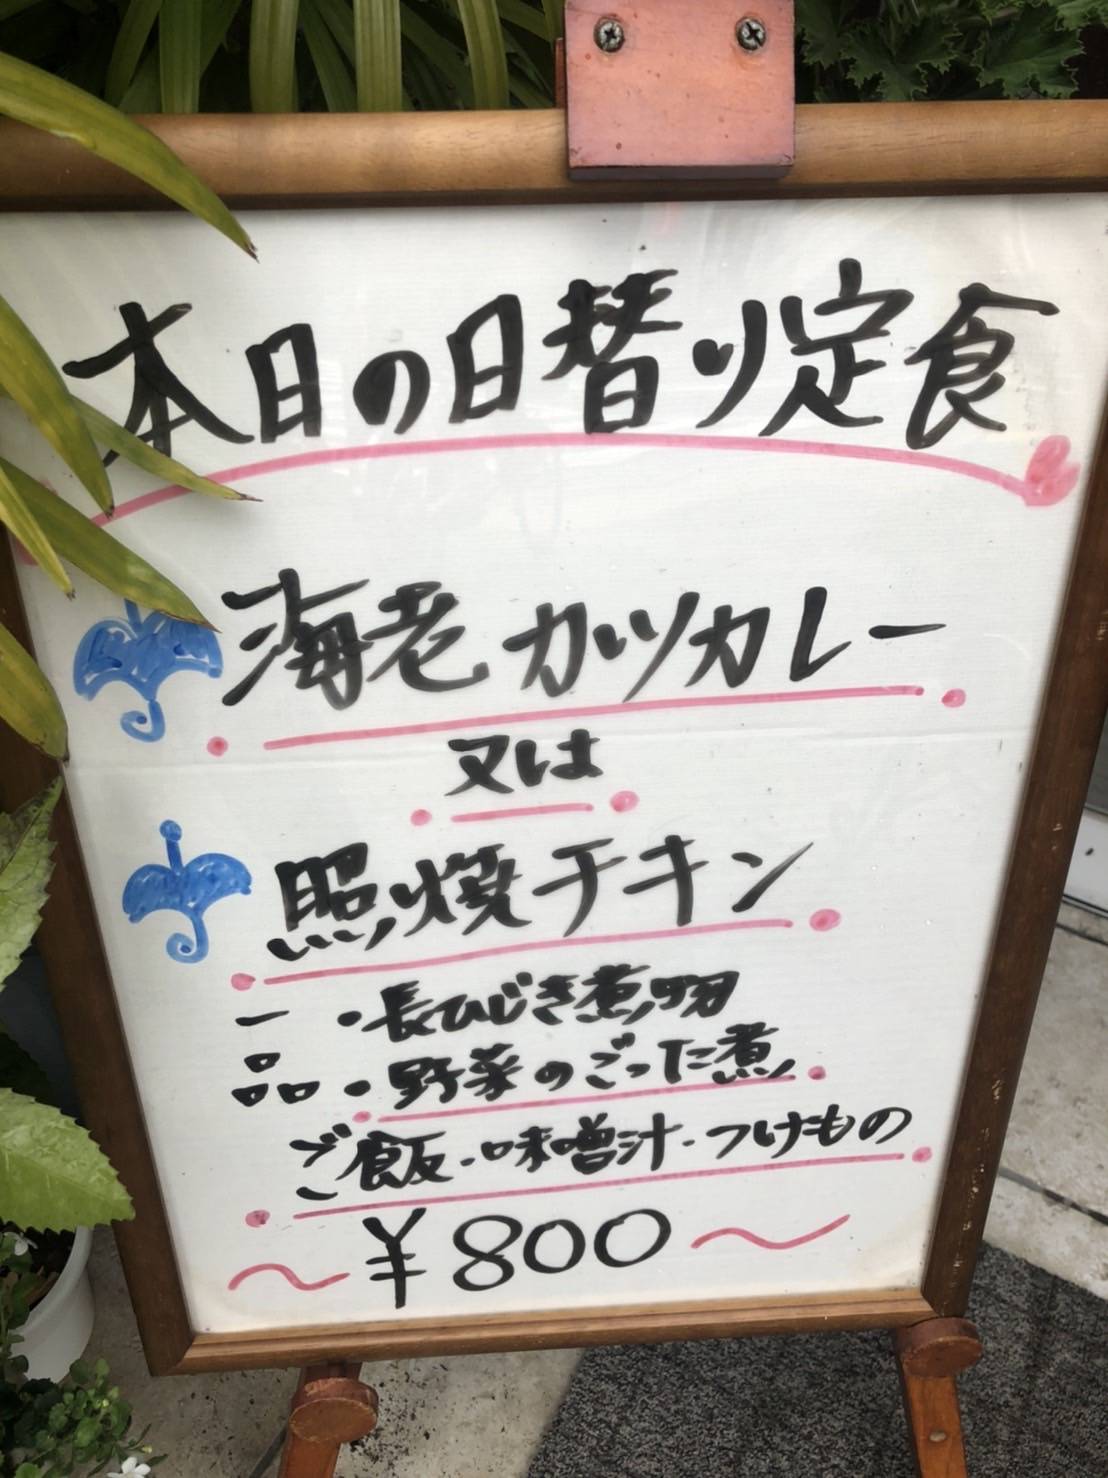 本日の日替り定食
海老カツカレー
又は
照焼チキン
一品
・長ひじき煮物
・野菜のごった煮
ご飯・味噌汁・つけもの
〜¥800〜